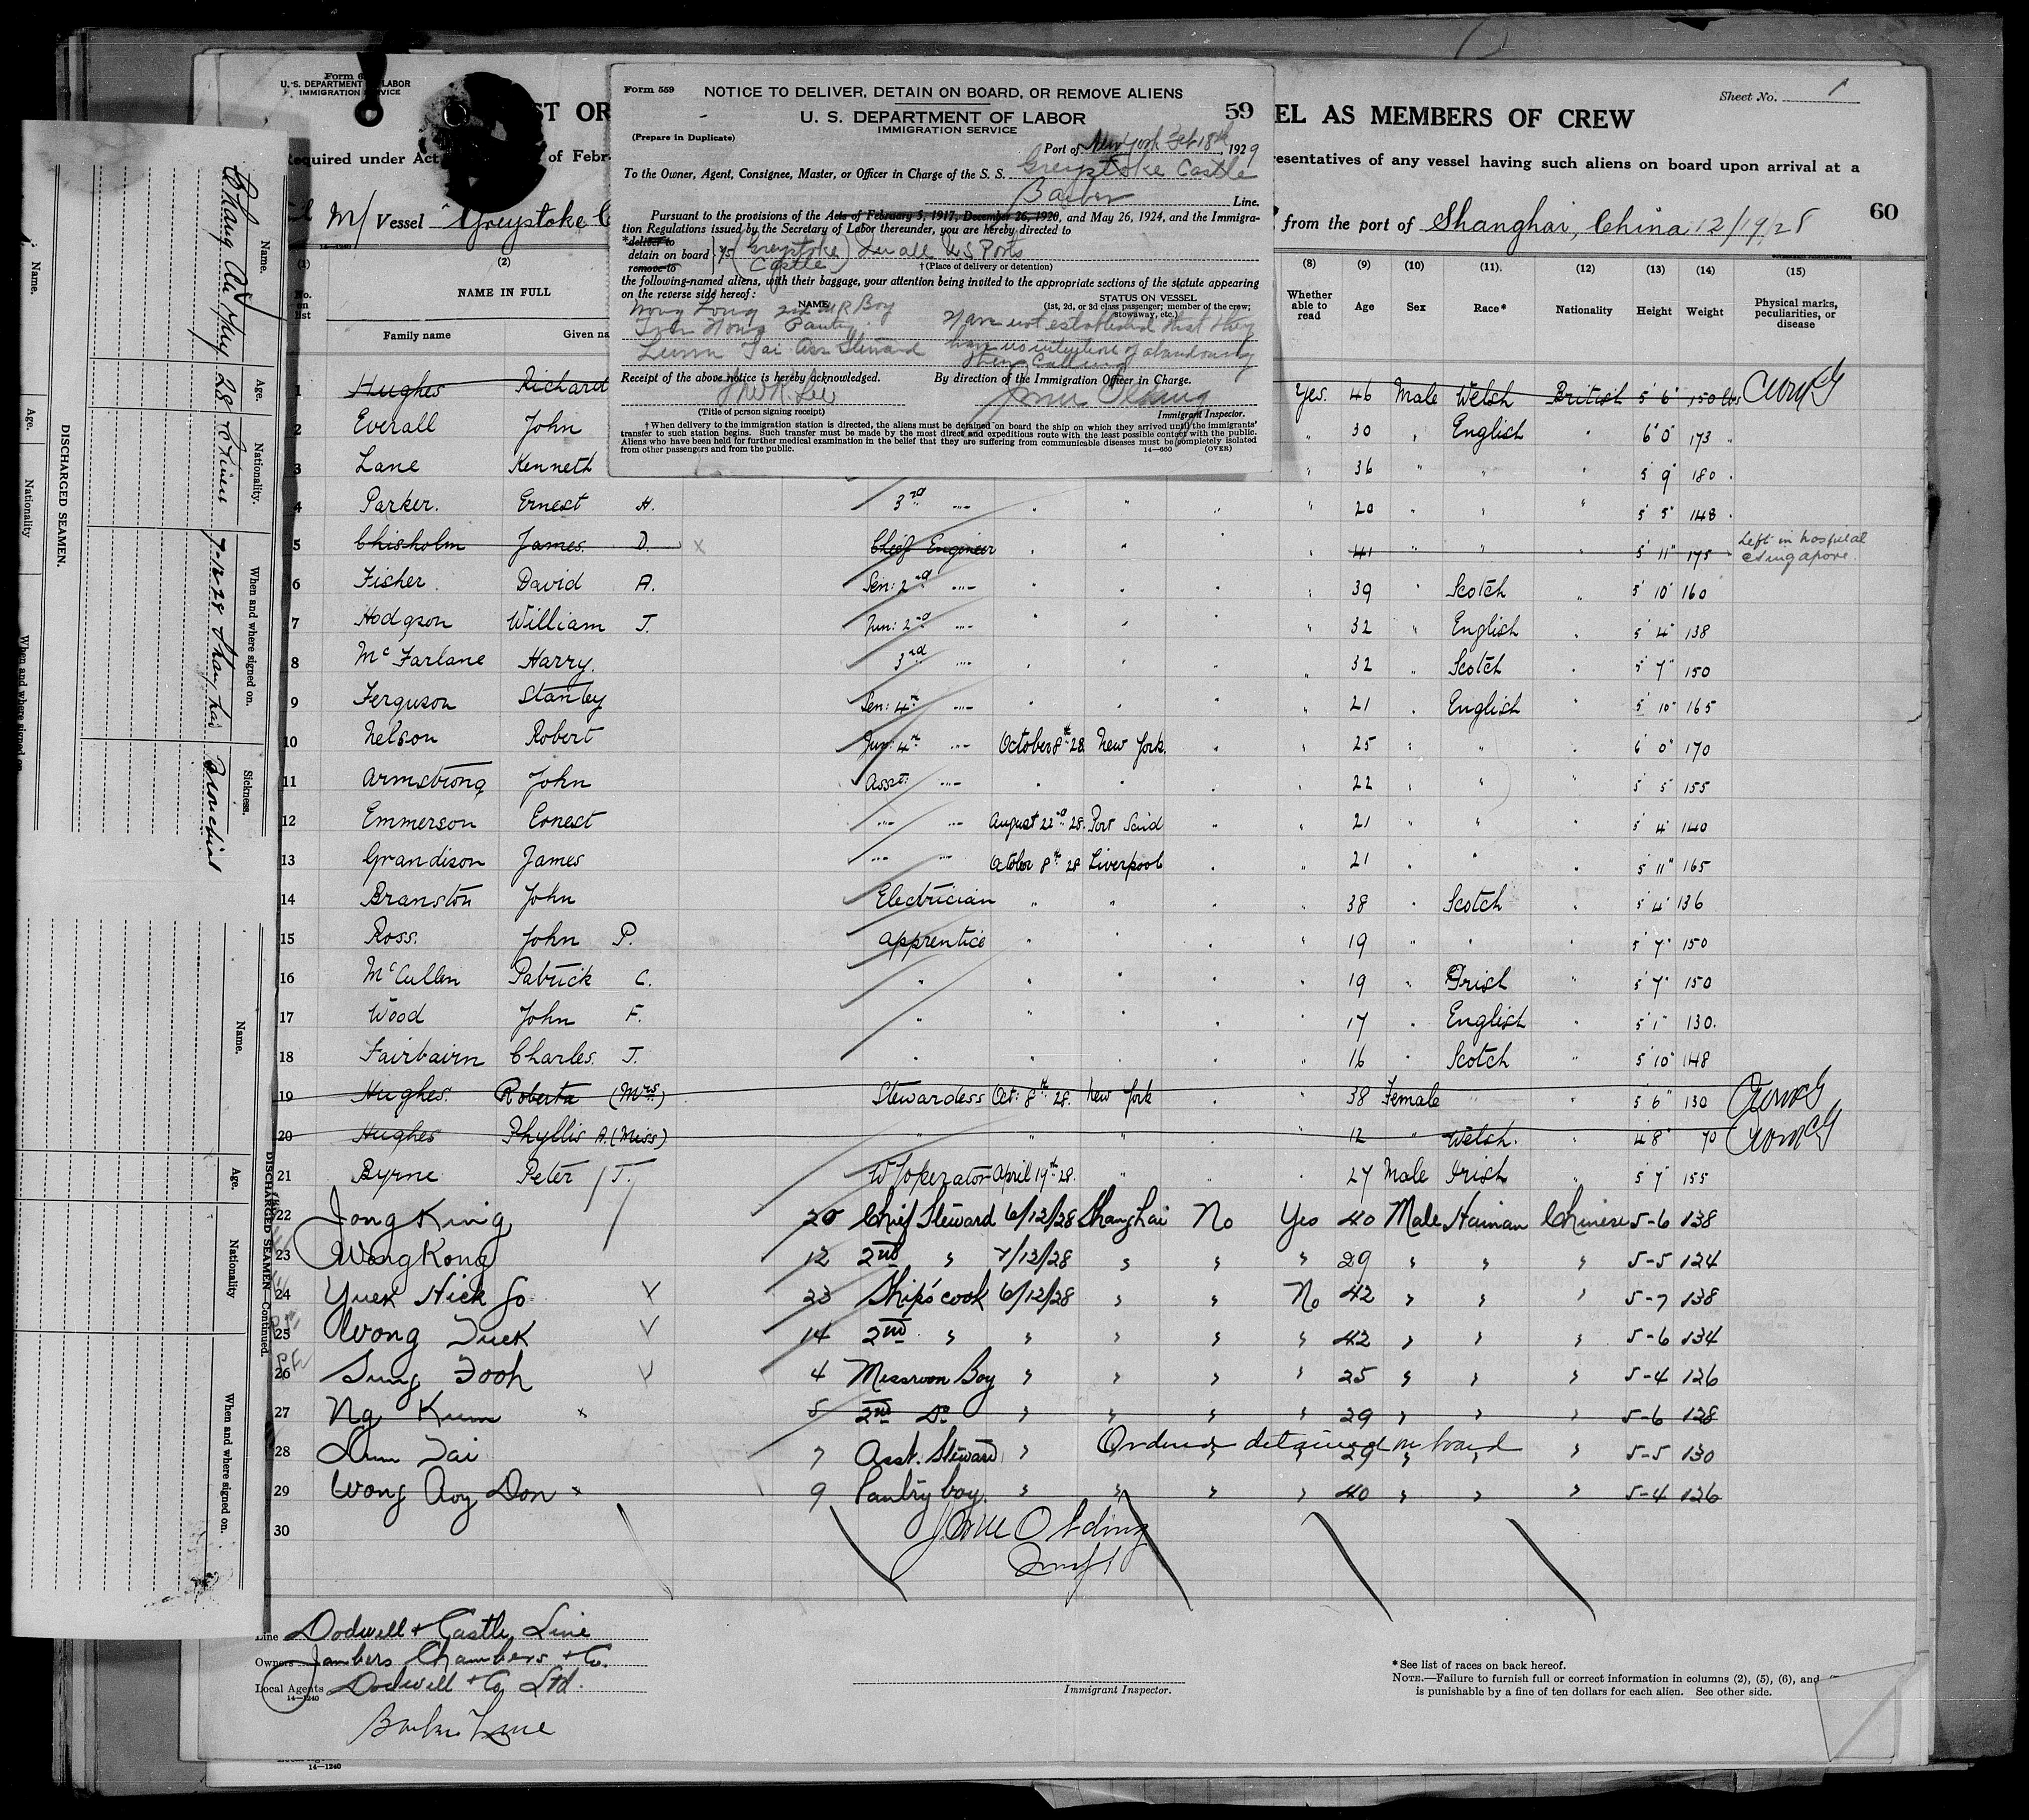 Form 6
U. S. DEPARTMENT LABOR
IMMIGRATION SERVICE
ST OR
EL AS MEMBERS OF CREW
Sheet No. 1
Required under Act of Febr
resentatives of any vessel having such aliens on board upon arrival at a
M/ Vessel "Greystoke C
from the port of Shanghai, China 12/19/28
60
14—1240
Form 559
NOTICE TO DELIVER, DETAIN ON BOARD, OR REMOVE ALIENS
59
U. S. DEPARTMENT OF LABOR
IMMIGRATION SERVICE
(Prepare in Duplicate)
Port of New York Feb 18th, 1929
To the Owner, Agent, Consignee, Master, or Officer in Charge of the S. S. Greystoke Castle
Barber Line.
Pursuant to the provisions of the Acts of February 5, 1917, December 26, 1920, and May 26, 1924, and the Immigra-
tion Regulations issued by the Secretary of Labor thereunder, you are hereby directed to
*deliver to
detain on board (Greystoke Castle) all US Ports
remove to
†(Place of delivery or detention)
the following-named aliens, with their baggage, your attention being invited to the appropriate sections of the statute appearing
on the reverse side hereof:
NAME
STATUS ON VESSEL
(1st, 2d, or 3d class passenger; member of the crew; stowaway, etc.)
Wong Long 2nd M R Boy
Pantry
Have not established that they
Lumm Tai Ass Steward
have no intention of abandoning
their Calling
Receipt of the above notice is hereby acknowledged.
By direction of the Immigration Officer in Charge.
(Title of person signing receipt)
Immigrant Inspector.
†When delivery to the immigration station is directed, the aliens must be detained on board the ship on which they arrived until the immigrants'
transfer to such station begins. Such transfer must be made by the most direct and expeditious route with the least possible contact with the public.
Aliens who have been held for further medical examination in the belief that they are suffering from communicable diseases must be completely isolated
from other passengers and from the public.
14—660 (OVER)
(1) (2) (8) (9) (10) (11) (12) (13) (14) (15)
No. on list
NAME IN FULL
Family name Given na
Whether able to read
Age Sex Race* Nationality Height Weight
Physical marks, peculiarities, or disease
1 Hughes Richard Yes. 46 Male Welsh British 5' 6" 150 lbs
2 Everall John " 30 " English " 6' 0" 173 "
3 Lane Kenneth " 36 " " " 5' 9" 180 "
4 Parker. Ernest H. 3rd " " " " " 20 " " " 5' 5" 148 "
5 Chisholm James. D. x Chief Engineer " " " 41 " " " 5' 11" 175 Left in hospital Singapore.
6 Fisher. David A. Sen: 2nd " " " " " 39 " Scotch " 5' 10" 160
7 Hodgson William J. Jun: 2nd " " " " 32 " English " 5' 4" 138
8 McFarlane Harry. 3rd " " " " " 32 " Scotch " 5' 7" 150
9 Ferguson Stanley Sen: 4th " " " " " 21 " English " 5' 10" 165
10 Nelson Robert Jun: 4th " October 8th 28. New York. " " 25 " " " 6' 0" 170
11 Armstrong John Asst: " " " " " 22 " " " 5' 5" 155
12 Emmerson Ernest " " August 22nd 28. Port Said " " 21 " " " 5' 4" 140
13 Grandison James " " October 8th 28 Liverpool " " 21 " " " 5' 11" 165
14 Branston John Electrician " " " " 38 " Scotch " 5' 4" 136
15 Ross. John P. Apprentice " " " " 19 " " " 5' 7" 150
16 McCullen Patrick C. " " " " 19 " Irish " 5' 7" 150
17 Wood John F. " " " " " 17 " English " 5' 1" 130.
18 Fairbairn Charles. J. " " " " " 16 " Scotch " 5' 10" 148
19 Hughes. Roberta (Mrs) Stewardess Oct: 8th 28. New York " " 38 Female " " 5' 6" 130
20 Hughes Phyllis A. (Miss) " " " " " 12 " Welsh. " 4' 8" 70
21 Byrne Peter J. W/operator April 19th 28. " " " 27 Male Irish " 5' 7" 155
22 Jong King 20 Chief Steward 6/12/28 Shanghai No Yes 40 Male Hainan Chinese 5-6 138
23 Wong Kong 12 2nd " 7/12/28 " " " 29 " " " 5-5 124
24 Yuek Hick Jo V 23 Ship's cook 6/12/28 " " No 42 " " " 5-7 138
25 Wong Tuck V 14 2nd " " " " " 42 " " " 5-6 134
26 Sung Fook V 4 Messroom Boy " " " " 25 " " " 5-4 126
27 Ng Kum x 5 2nd Do " " " " 29 " " " 5-6 128
28 Lum Tai 7 Asst. Steward " Ordered detained on board 29 " " " 5-5 130
29 Wong Aoy Don x 9 Pantry boy. " " " " 40 " " " 5-4 126
30
Line Dodwell & Castle Line
Owners Jambers Chambers & Co.
Local Agents Dodwell & Co Ltd.
14—1240
Barber Line
Immigrant Inspector.
*See list of races on back hereof.
NOTE.—Failure to furnish full or correct information in columns (2), (5), (6), and
is punishable by a fine of ten dollars for each alien. See other side.
14—1240
DISCHARGED SEAMEN.
Name. Age. Nationality. When and where signed on. Sickness.
28 Chinese 7-12-28 Shanghai Bronchial
Name. Age. Nationality When and where signed on
DISCHARGED SEAMEN—Continued.
Name. Age. Nationality When and where signed on.